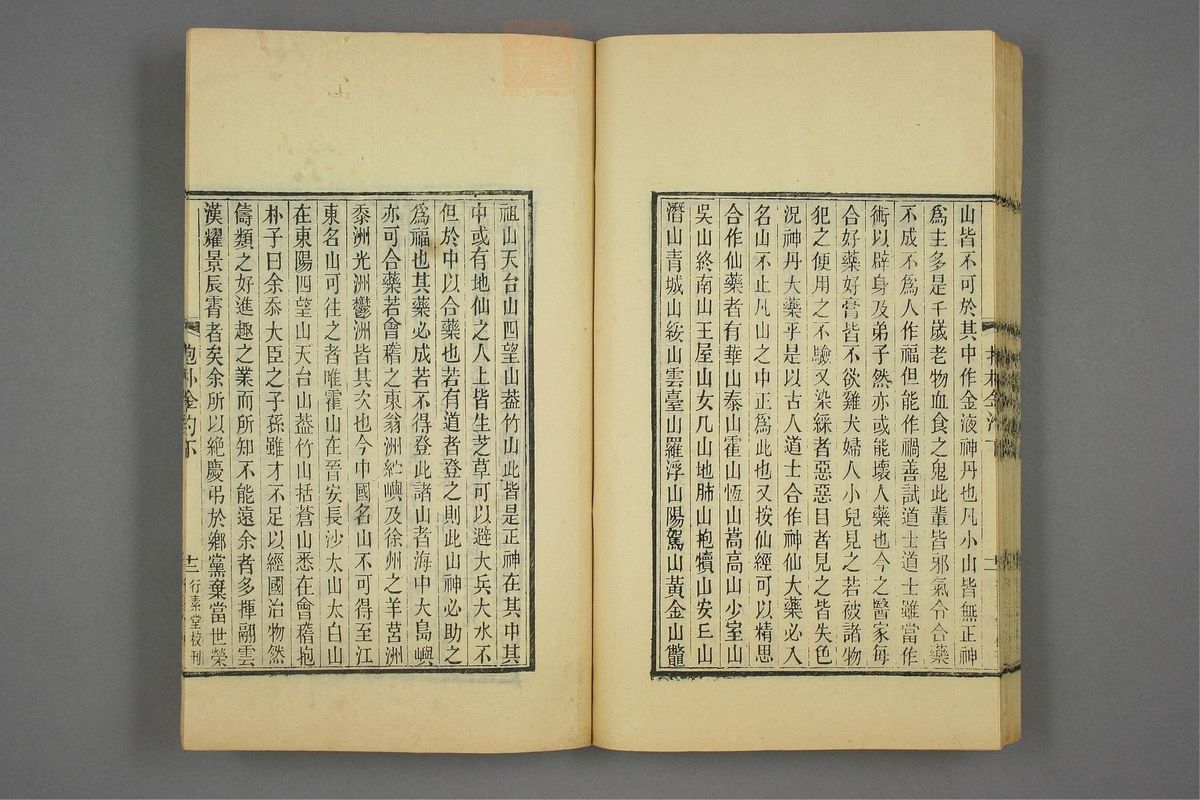 山皆不可於其中作金液神丹也凡小山皆無正神
爲主多是千歲老物血食之鬼此輩皆邪氣令合藥
不成不爲人作福但能作禍善試道士道士雖當作
術以辟身及弟子然亦或能壞人藥也今之醫家每
合好藥好膏皆不欲雞犬婦人小兒見之若破諸物
犯之便用之不驗又染綵者惡惡目者見之皆失色
況神丹大藥乎是以古人道士合作神仙大藥必入
名山不止凡山之中正爲此也又按仙經可以精思
合作仙藥者有華山泰山霍山恆山嵩高山少室山
吳山終南山王屋山女几山地肺山抱犢山安𠀋山
潛山青城山綏山雲臺山羅浮山陽駕山黃金山鼈
祖山天台山四望山葢竹山此皆是正神在其中其
中或有地仙之人上皆生芝草可以避大兵大水不
但於中以合藥也若有道者登之則此山神必助之
爲福也其藥必成若不得登此諸山者海中大島嶼
亦可合藥若會稽之東翁洲紵嶼及徐州之羊莒洲
黍洲光洲鬱洲皆其次也今中國名山不可得至江
東名山可往之者唯霍山在晉安長沙太山太白山
在東陽四望山天台山葢竹山括蒼山悉在會稽抱
朴子曰余忝大臣之子孫雖才不足以經國治物然
儔類之好進趣之業而所知不能遠余者多揮翮雲
漢耀景辰霄者矣余所以絶慶弔於鄉黨棄當世榮
抱朴金汋下
十二
行素堂校刊